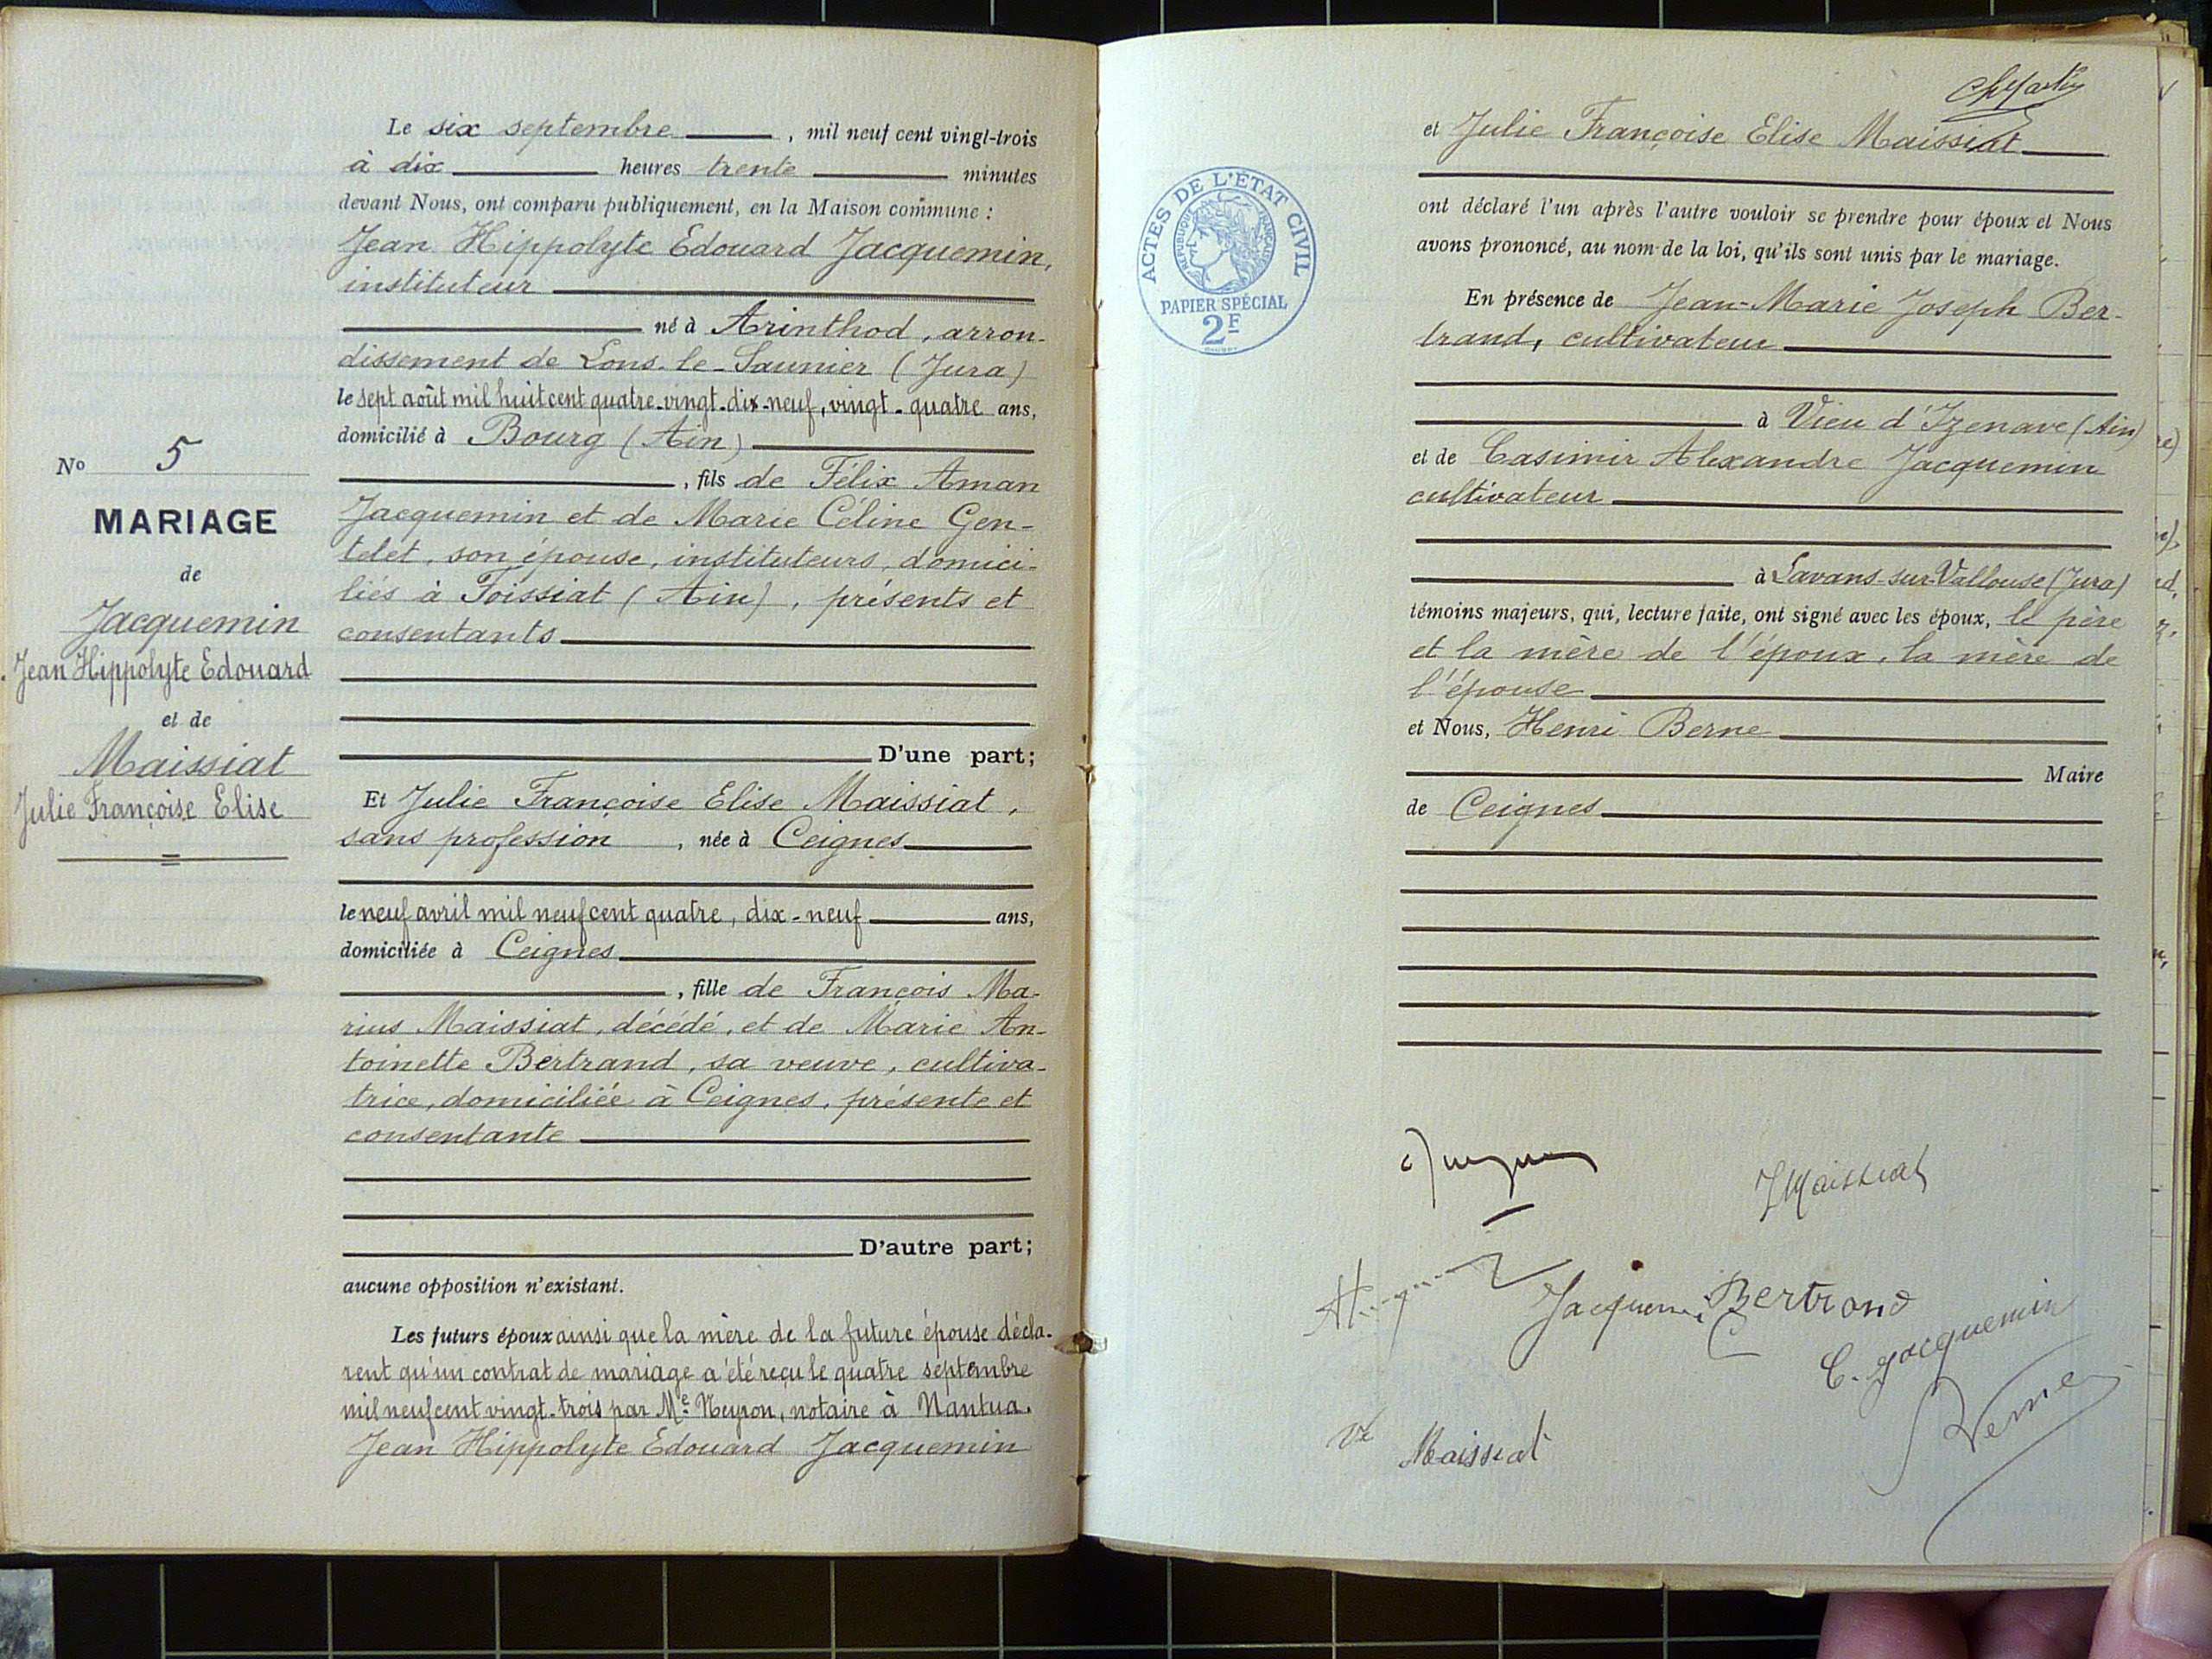 Le six septembre, mil neuf cent vingt-trois
à dix heures trente minutes
devant Nous, ont comparu publiquement, en la Maison commune :
Jean Hippolyte Edouard Jacquemin,
instituteur
né à Arinthod, arron-
dissement de Lons-le-Saunier (Jura)
le sept août mil huit cent quatre-vingt-dix-neuf, vingt-quatre ans,
domicilié à Bourg (Ain)
, fils de Félix Aman
Jacquemin et de Marie Céline Gen-
telet, son épouse, instituteurs, domici-
liés à Foissiat (Ain), présents et
consentants
D'une part;
Et Julie Françoise Elise Maissiat,
sans profession, née à Ceignes
le neuf avril mil neuf cent quatre, dix-neuf ans,
domiciliée à Ceignes
, fille de François Ma-
rius Maissiat, décédé, et de Marie An-
toinette Bertrand, sa veuve, cultiva-
trice, domiciliée à Ceignes, présente et
consentante
D'autre part;
aucune opposition n'existant.
Les futurs époux ainsi que la mère de la future épouse décla-
rent qu'un contrat de mariage a été reçu le quatre septembre
mil neuf cent vingt-trois par Me Neyron, notaire à Nantua.
Jean Hippolyte Edouard Jacquemin
No 5
MARIAGE
de
Jacquemin
Jean Hippolyte Edouard
et de
Maissiat
Julie Françoise Elise
et Julie Françoise Elise Maissiat
ont déclaré l'un après l'autre vouloir se prendre pour époux et Nous
avons prononcé, au nom de la loi, qu'ils sont unis par le mariage.
En présence de Jean-Marie Joseph Ber-
trand, cultivateur
à Vieu d'Izenave (Ain)
et de Casimir Alexandre Jacquemin
cultivateur
à Savans-sur-Vallouse (Jura)
témoins majeurs, qui, lecture faite, ont signé avec les époux, le père
et la mère de l'époux, la mère de
l'épouse
et Nous, Henri Berne
Maire
de Ceignes
ACTES DE L'ÉTAT CIVIL
RÉPUBLIQUE FRANÇAISE
PAPIER SPÉCIAL
2F
J Maissiat
Jacquemin
Bertrand
C. Jacquemin
Berne
Vve Maissiat